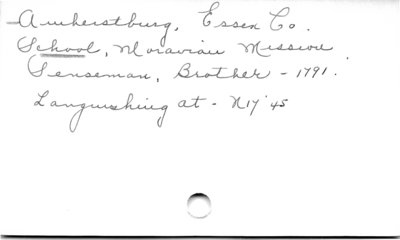 Amherstburg, Essex Co.
School, Moravian Mission
Senseman, Brother - 1791.
Languishing at - N17'45